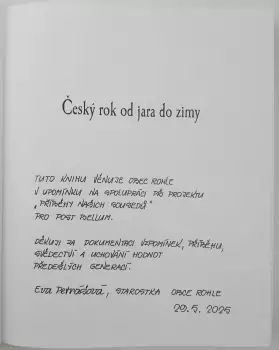 Český rok od jara do zimy
TUTO KNIHU VĚNUJE OBEC ROHLE
V UPOMÍNKU NA SPOLUPRÁCI PŘI PROJEKTU
„PŘÍBĚHY NAŠICH SOUSEDŮ"
PRO POST BELLUM.
DĚKUJI ZA DOKUMENTACI VZPOMÍNEK, PŘÍBĚHŮ,
SVĚDECTVÍ A UCHOVÁNÍ HODNOT
PŘEDEŠLÝCH GENERACÍ.
EVA, STAROSTKA OBCE ROHLE
29.5. 2025